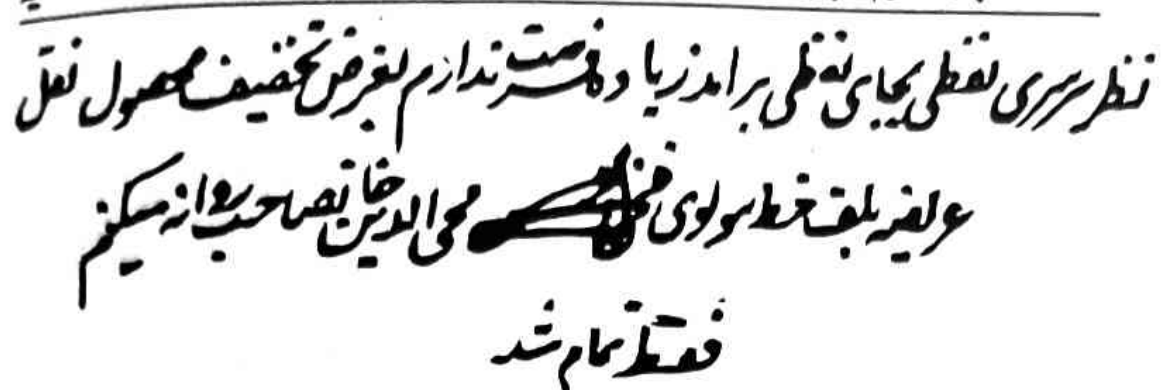 نظر سرسری لفظی بجای لفظی برآمد زیاده فرصت ندارم بغرض تخفیف محصول نقل
عریضه بلف خط مولوی محی الدین خانصاحب روانه میکنم
فقط تمام شد